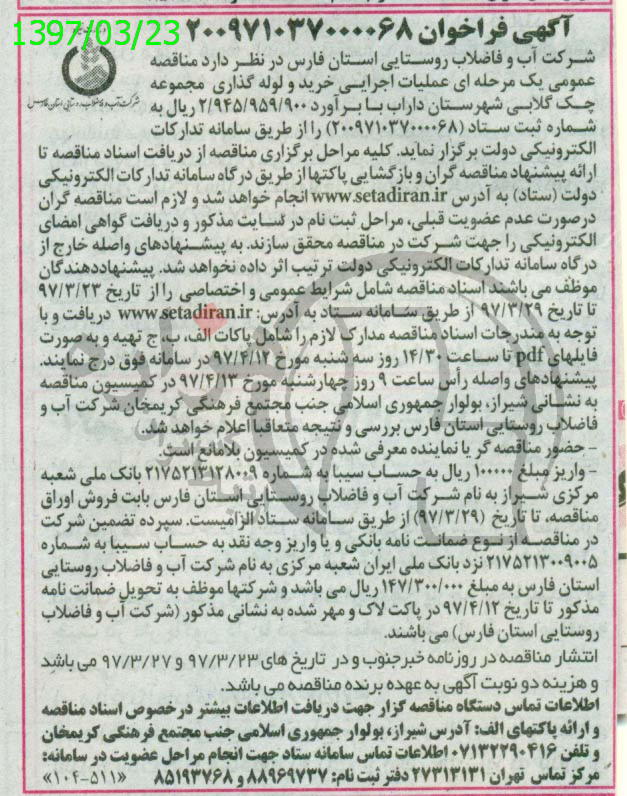 1397/03/23
آگهی فراخوان ۲۰۰۹۷۱۰۳۷۰۰۰۰۶۸
شرکت آب و فاضلاب روستایی استان فارس در نظر دارد مناقصه
عمومی یک مرحله ای عملیات اجرایی خرید و لوله گذاری مجموعه
چک گلابی شهرستان داراب با برآورد ۲/۹۴۵/۹۵۹/۹۰۰ ریال به
شماره ثبت ستاد (۲۰۰۹۷۱۰۳۷۰۰۰۰۶۸) را از طریق سامانه تدارکات
شرکت آب و فاضلاب روستایی استان فارس
الکترونیکی دولت برگزار نماید. کلیه مراحل برگزاری مناقصه از دریافت اسناد مناقصه تا
ارائه پیشنهاد مناقصه گران و بازگشایی پاکتها از طریق درگاه سامانه تدارکات الکترونیکی
دولت (ستاد) به آدرس www.setadiran.ir انجام خواهد شد و لازم است مناقصه گران
درصورت عدم عضویت قبلی، مراحل ثبت نام در سایت مذکور و دریافت گواهی امضای
الکترونیکی را جهت شرکت در مناقصه محقق سازند. به پیشنهادهای واصله خارج از
درگاه سامانه تدارکات الکترونیکی دولت ترتیب اثر داده نخواهد شد. پیشنهاددهندگان
موظف می باشند اسناد مناقصه شامل شرایط عمومی و اختصاصی را از تاریخ ۹۷/۳/۲۳
تا تاریخ ۹۷/۳/۲۹ از طریق سامانه ستاد به آدرس: www.setadiran.ir دریافت و با
توجه به مندرجات اسناد مناقصه مدارک لازم را شامل پاکات الف، ب، ج تهیه و به صورت
فایلهای pdf تا ساعت ۱۴/۳۰ روز سه شنبه مورخ ۹۷/۴/۱۲ در سامانه فوق درج نمایند.
پیشنهادهای واصله رأس ساعت ۹ روز چهارشنبه مورخ ۹۷/۴/۱۳ در کمیسیون مناقصه
به نشانی شیراز، بولوار جمهوری اسلامی جنب مجتمع فرهنگی کریمخان شرکت آب و
فاضلاب روستایی استان فارس بررسی و نتیجه متعاقبا اعلام خواهد شد.)
- حضور مناقصه گر یا نماینده معرفی شده در کمیسیون بلامانع است.
- واریز مبلغ ۱۰۰۰۰۰ ریال به حساب سیبا به شماره ۲۱۷۵۲۱۳۱۲۸۰۰۹ بانک ملی شعبه
مرکزی شیراز به نام شرکت آب و فاضلاب روستایی استان فارس بابت فروش اوراق
مناقصه، تا تاریخ (۹۷/۳/۲۹) از طریق سامانه ستاد الزامیست. سپرده تضمین شرکت
در مناقصه از نوع ضمانت نامه بانکی و یا واریز وجه نقد به حساب سیبا به شماره
۲۱۷۵۲۱۳۰۰۹۰۰۵ نزد بانک ملی ایران شعبه مرکزی به نام شرکت آب و فاضلاب روستایی
استان فارس به مبلغ ۱۴۷/۳۰۰/۰۰۰ ریال می باشد و شرکتها موظف به تحویل ضمانت نامه
مذکور تا تاریخ ۹۷/۴/۱۲ در پاکت لاک و مهر شده به نشانی مذکور (شرکت آب و فاضلاب
روستایی استان فارس) می باشند.
انتشار مناقصه در روزنامه خبرجنوب و در تاریخ های ۹۷/۳/۲۳ و ۹۷/۳/۲۷ می باشد
و هزینه دو نوبت آگهی به عهده برنده مناقصه می باشد.
اطلاعات تماس دستگاه مناقصه گزار جهت دریافت اطلاعات بیشتر در خصوص اسناد مناقصه
و ارائه پاکتهای الف: آدرس شیراز، بولوار جمهوری اسلامی جنب مجتمع فرهنگی کریمخان
و تلفن ۰۷۱۳۲۲۹۰۴۱۶ اطلاعات تماس سامانه ستاد جهت انجام مراحل عضویت در سامانه:
مرکز تماس تهران ۲۷۳۱۳۱۳۱ دفتر ثبت نام: ۸۸۹۶۹۷۳۷ و ۸۵۱۹۳۷۶۸ «۵۱۱-۱۰۴»